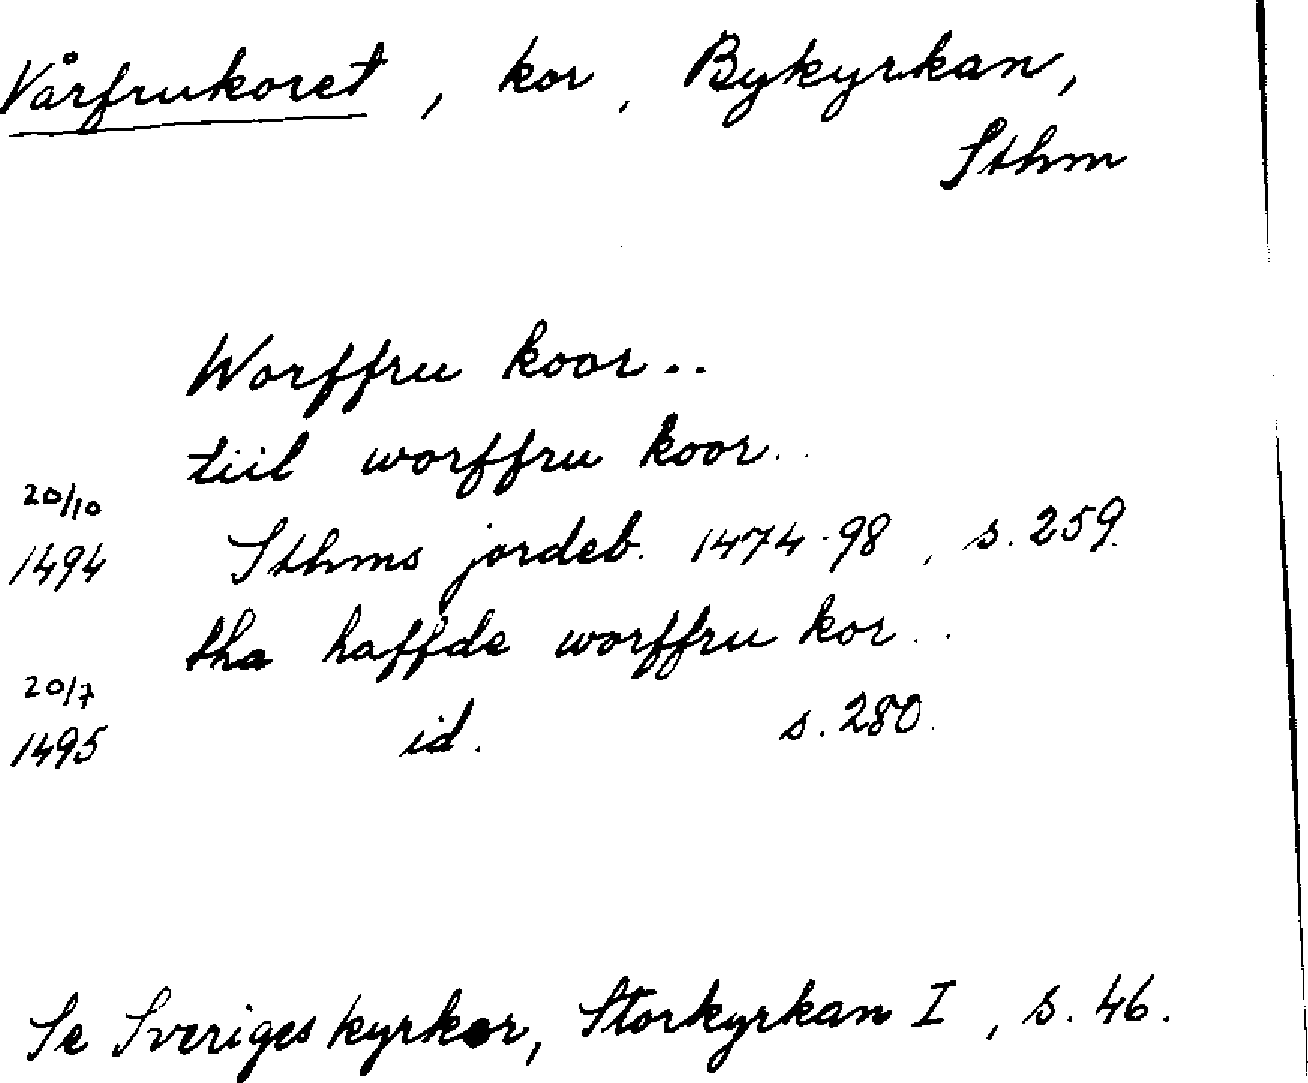 Vårfrukoret, kor, Bykyrkan,
Sthm
Worffru koor..
tiil worffru koor..
20/10
1494 Sthms jordeb. 1474-98, s. 259.
tha haffde worffru kor..
20/7
1495 id. s. 280.
Se Sveriges kyrkor, Storkyrkan I, s. 46.